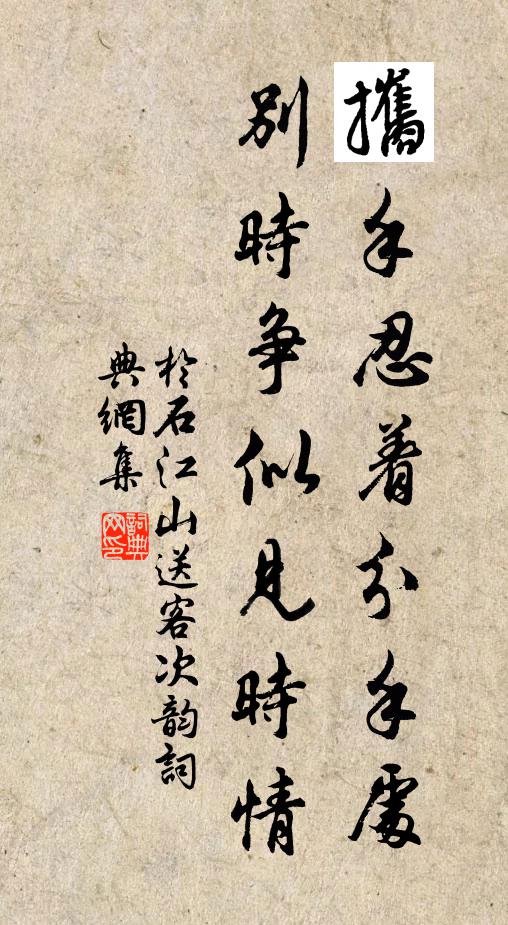 攜手忍着分手處
別時爭似見時情
於石江山送客次韵詞
典網集
詞典
网印